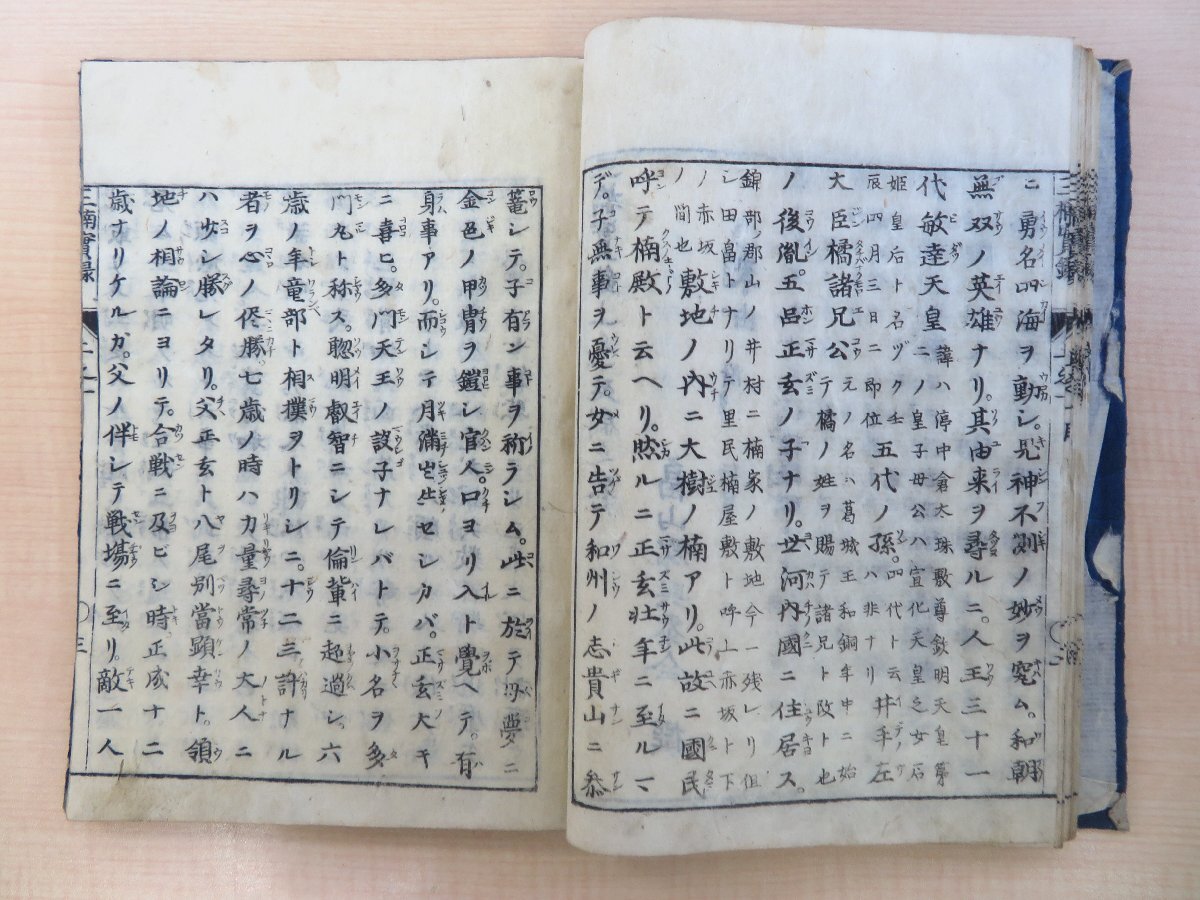 ニ勇名四海ヲ動シ。鬼神不測ノ妙ヲ究ム。和朝
無双ノ英雄ナリ。其由来ヲ尋ルニ。人王三十一
代敏達天皇諱ハ停中倉太珠敷尊欽明天皇第
二ノ皇子母公ハ宣化天皇之女石
姫皇后ト名ヅク壬
辰四月三日ニ即位五代ノ孫。四代ト云
ハ非ナリ井手左
大臣橘諸兄公元ノ名ハ葛城王和銅年中ニ始
テ橘ノ姓ヲ賜テ諸兄ト改ト也
ノ後胤。五呂正玄ノ子ナリ。世河内國ニ住居ス。
錦部ノ郡山ノ井村ニ楠家ノ敷地今ニ残レリ但
シ田畠トナリテ里民楠屋敷ト呼上赤坂ト下
ノ赤坂
ノ間也敷地ノ内ニ大樹ノ楠アリ。此故ニ國民
呼テ楠殿ト云ヘリ。然ルニ正玄壮年ニ至ルマ
デ。子無事ヲ憂テ。女ニ告テ和州ノ志貴山ニ参
篭シテ。子有ン事ヲ祈ラシム。此ニ於テ母夢ニ
金色ノ甲冑ヲ鎧シ官人。口ヨリ入ト覺ヘテ。有
身事アリ。而シテ月満出生セシカバ。正玄大キ
ニ喜ヒ。多門天王ノ設子ナレバトテ。小名ヲ多
門丸ト称ス。聡明叡智ニシテ倫輩ニ超過シ。六
歳ノ年竜部ト相撲ヲトリシニ。十二三許ナル
者ヲ心ノ侭勝。七歳ノ時ハ力量尋常ノ大人ニ
ハ少シ勝レタリ。父正玄ト八尾別當顕幸ト。領
地ノ相論ニヨリテ。合戦ニ及ビシ時正成十二
歳ナリケルガ。父ノ伴シテ戦場ニ至リ。敵一人
三楠實録